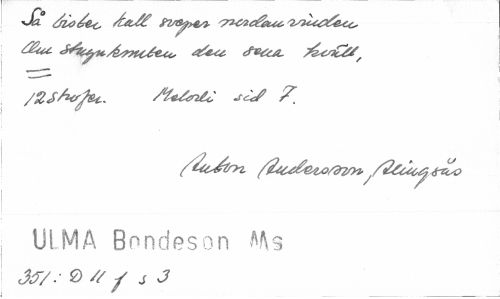 Så bister kall sveper nordanvinden
Om stuguknuten den sena kväll,
12 strofer. Melodi sid 7.
Anton Andersson, Alingsås
ULMA Bondeson Ms
351: D 11 f s 3